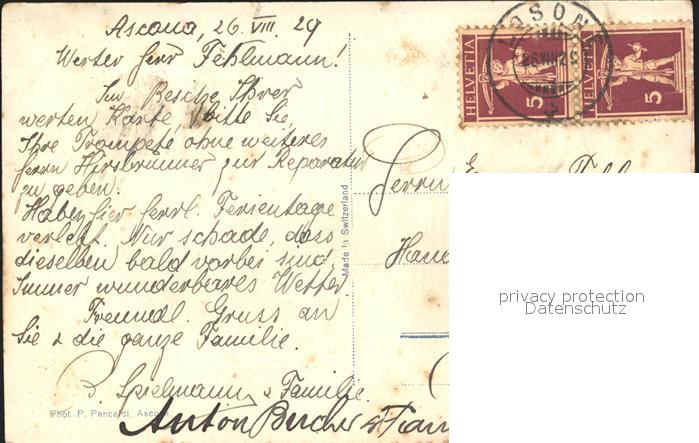 Ascona, 26. VIII. 29
Werter Herr Fehlmann!
Im Besitze Ihrer
werten Karte, bitte Sie,
Ihre Trompete ohne weiteres
Herrn Hirsbrunner zur Reparatur
zu geben.
Haben hier herrl. Ferientage
verlebt. Nur schade, dass
dieselben bald vorbei sind.
Immer wunderbares Wetter.
Freundl. Gruss an
Sie & die ganze Familie.
Spielmann & Familie.
Anton Bucher &
Phot. P. Pancaldi, Ascona
Made in Switzerland
HELVETIA
5
HELVETIA
5
Herrn
privacy protection
Datenschutz